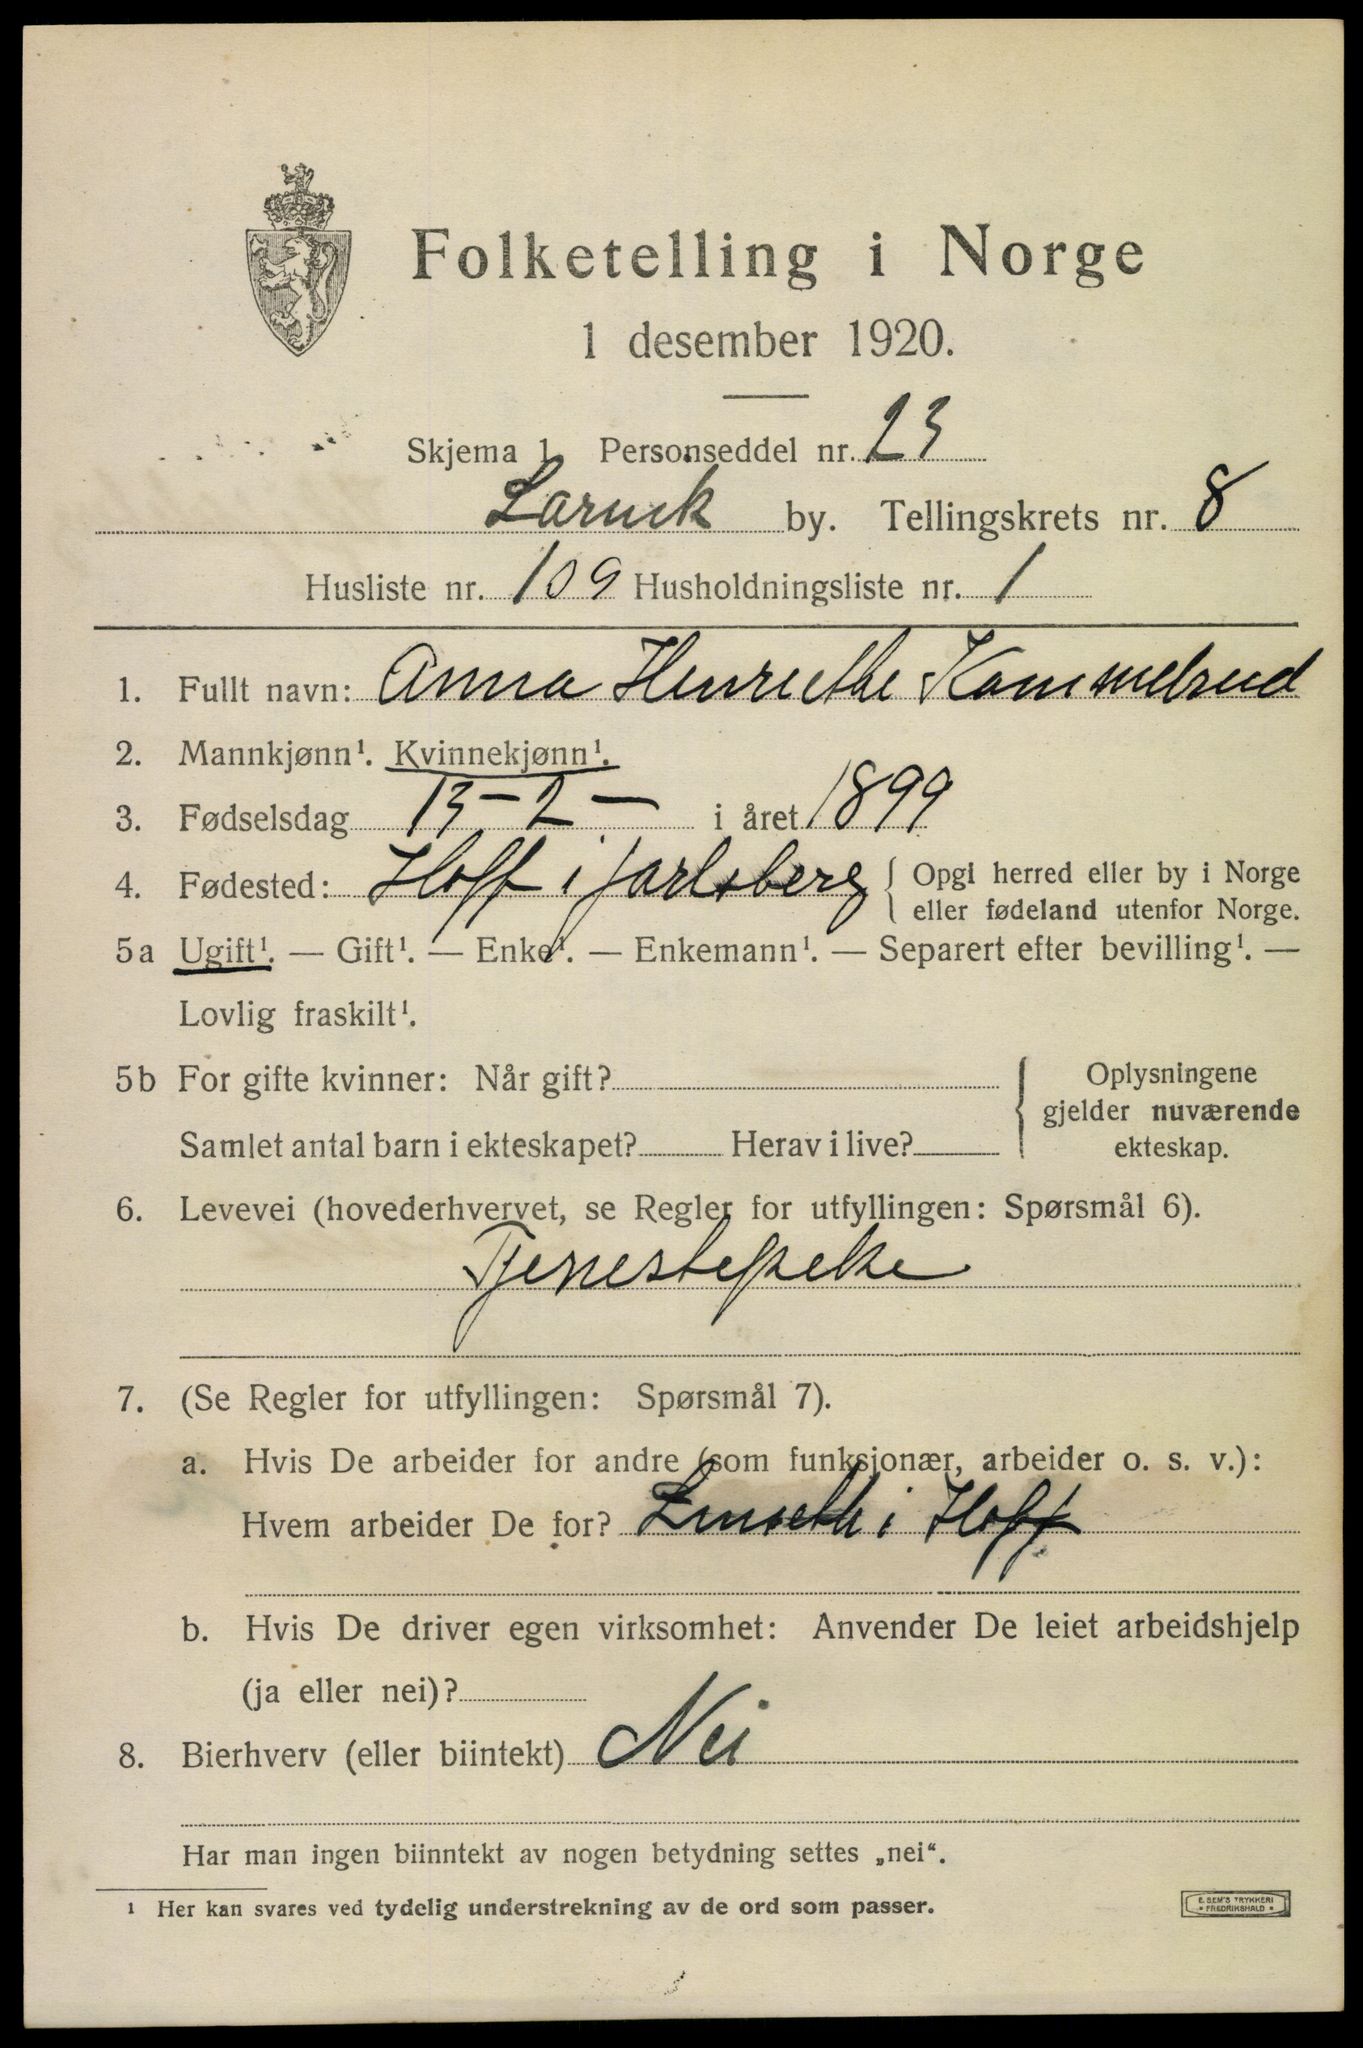 Folketelling i Norge
1 desember 1920.
Skjema 1 Personseddel nr. 23
Larvik by. Tellingskrets nr. 8
Husliste nr. 109 Husholdningsliste nr. 1
1. Fullt navn: Anna Henriethe Kammelrud
2. Mannkjønn¹. Kvinnekjønn¹.
3. Fødselsdag 13-2- i året 1899
4. Fødested: Hoff i Jarlsberg { Opgi herred eller by i Norge
eller fødeland utenfor Norge.
5a Ugift¹. — Gift¹. — Enke¹. — Enkemann¹. — Separert efter bevilling¹. —
Lovlig fraskilt¹.
5b For gifte kvinner: Når gift? { Oplysningene
gjelder nuværende
Samlet antal barn i ekteskapet? Herav i live? ekteskap.
6. Levevei (hovederhvervet, se Regler for utfyllingen: Spørsmål 6).
Tjenestepike
7. (Se Regler for utfyllingen: Spørsmål 7).
a. Hvis De arbeider for andre (som funksjonær, arbeider o. s. v.):
Hvem arbeider De for? i Hoff
b. Hvis De driver egen virksomhet: Anvender De leiet arbeidshjelp
(ja eller nei)?
8. Bierhverv (eller biintekt) Nei
Har man ingen biinntekt av nogen betydning settes „nei“.
¹ Her kan svares ved tydelig understrekning av de ord som passer.
E. SEM'S TRYKKERI
FREDRIKSHALD